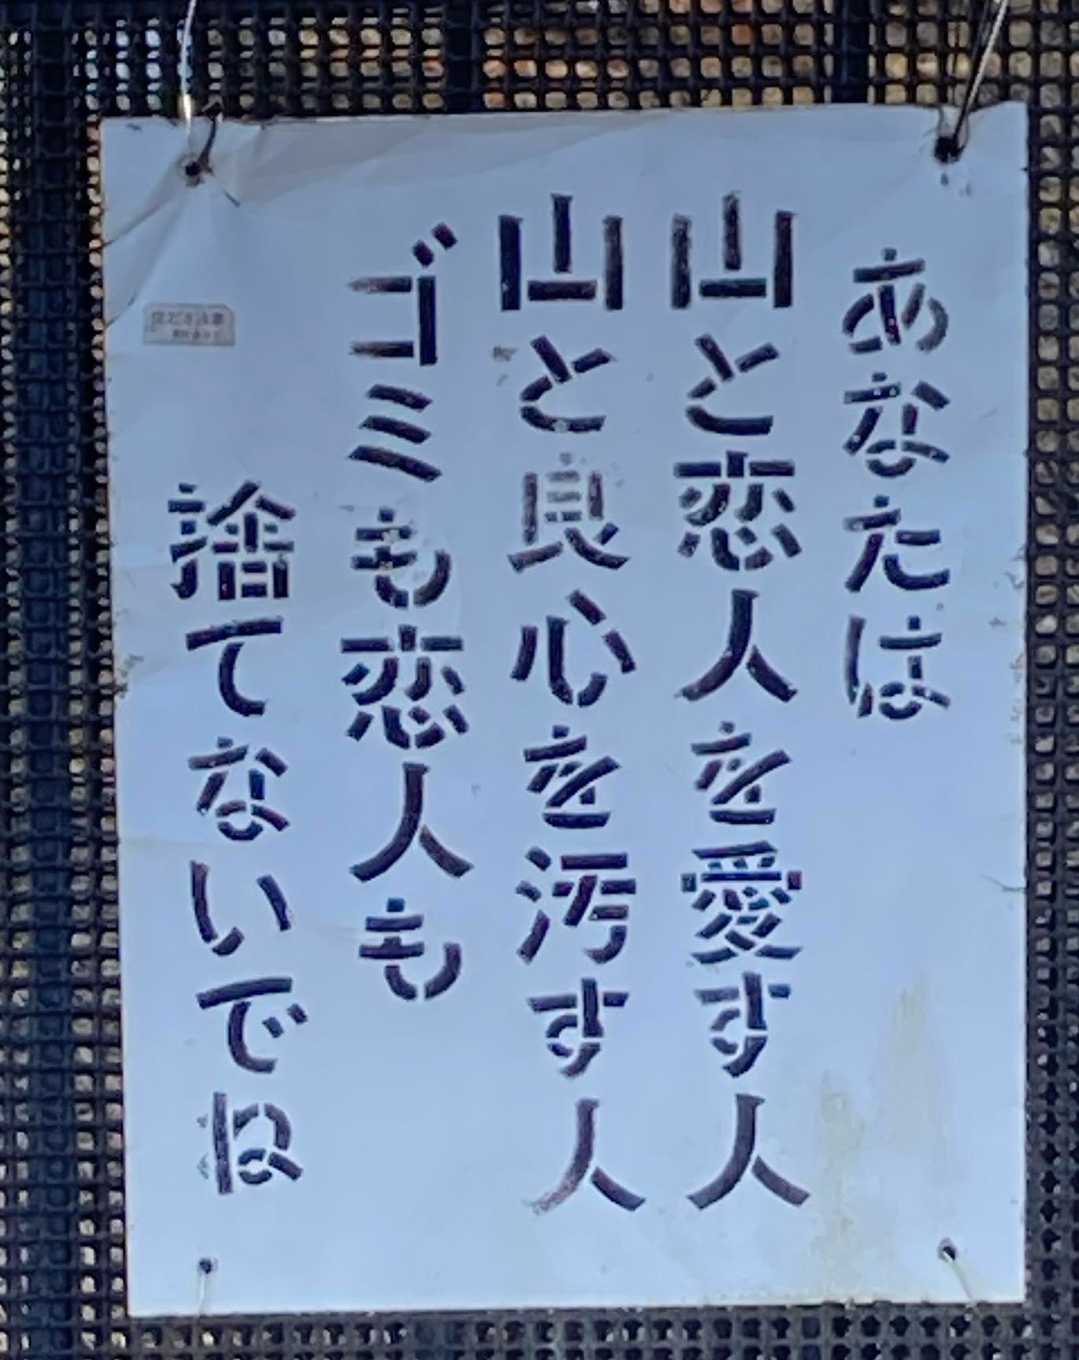 あなたは
山と恋人を愛す人
山と良心を汚す人
ゴミも恋人も
捨てないでね